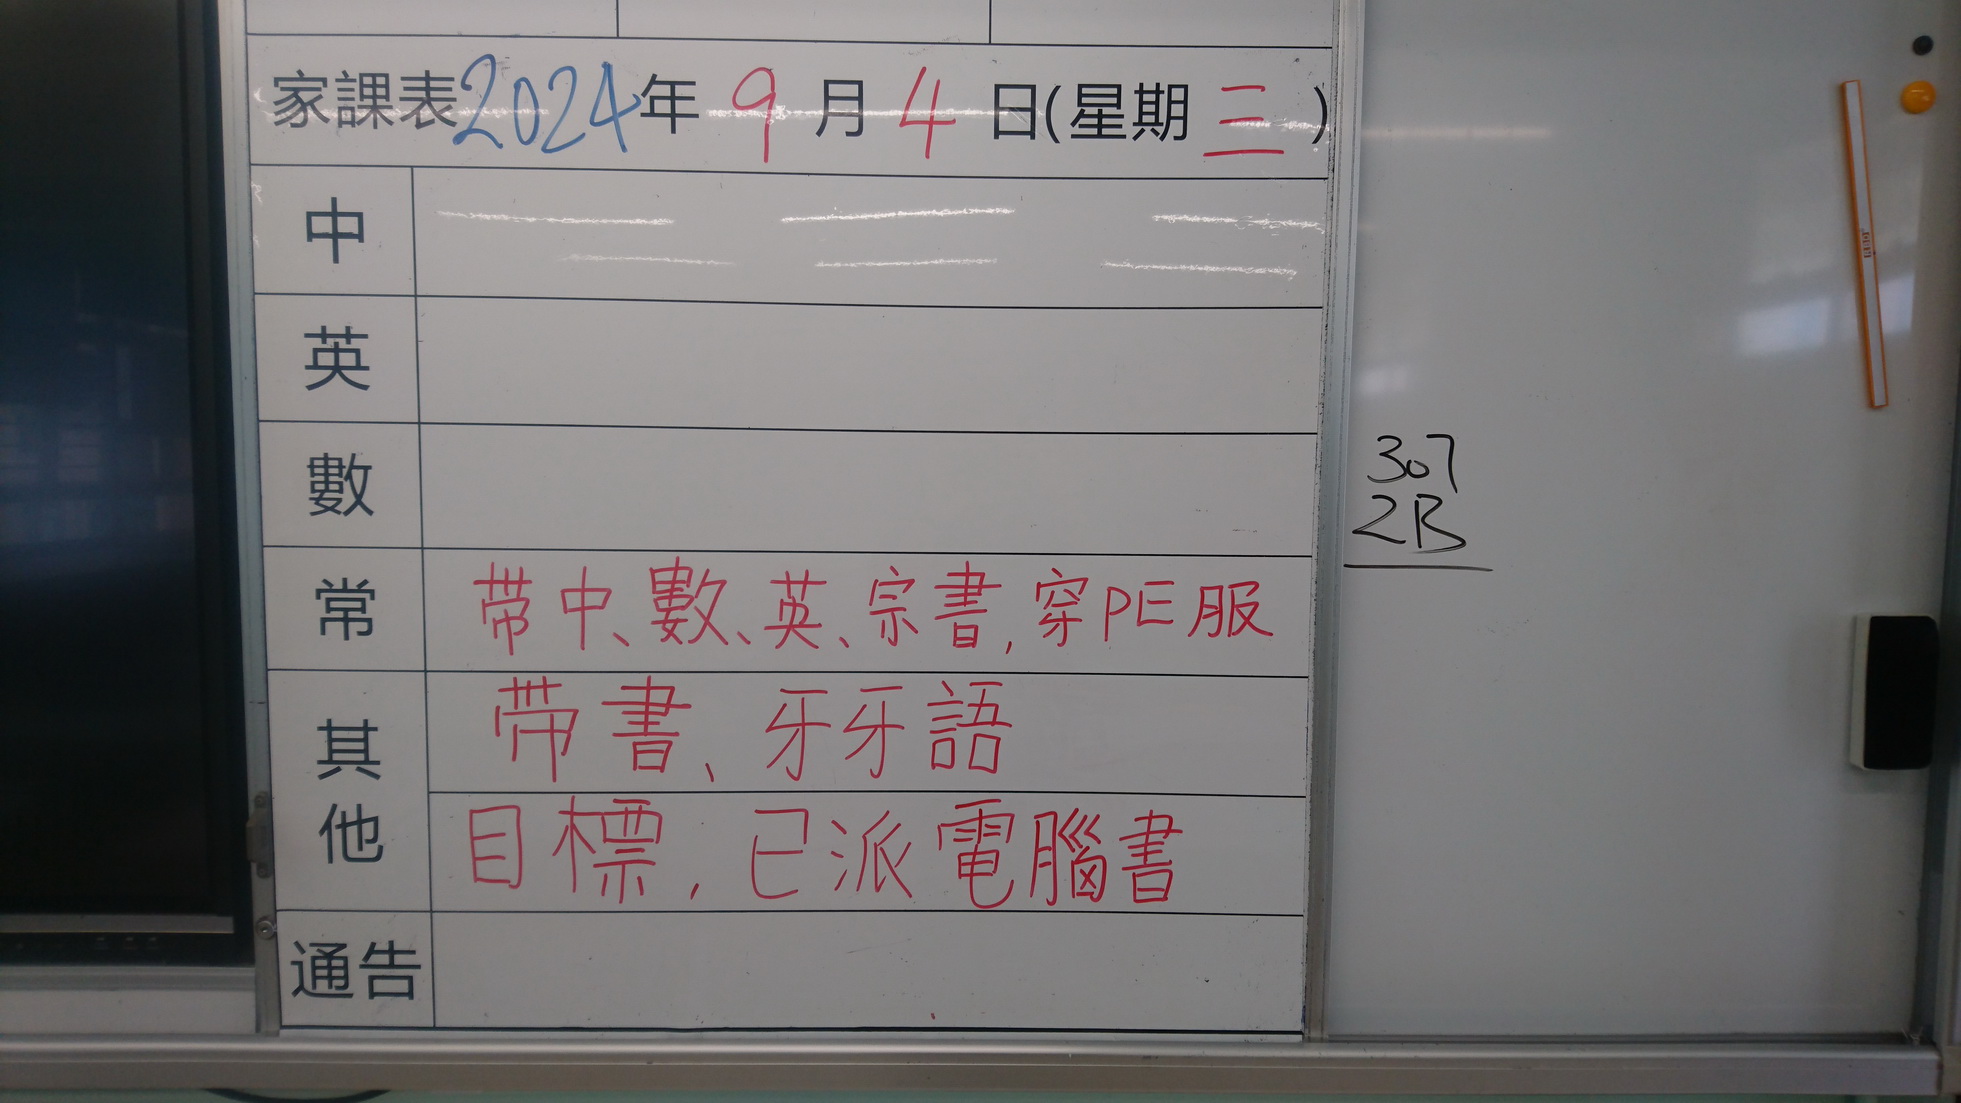 家課表2024年 9 月 4 日(星期 三 )
中
英
數
常 帶中、數、英、宗書,穿PE服
其他 帶書、牙牙語
目標,已派電腦書
通告
307
2B